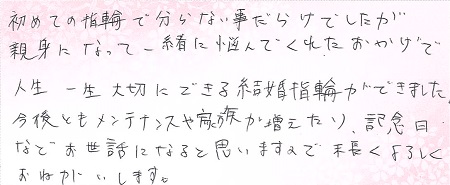 初めての指輪で分らない事だらけでしたが
親身になって一緒に悩んでくれたおかげで
人生一生大切にできる結婚指輪ができました。
今後ともメンテナンスや家族が増えたり、記念日
などお世話になると思いますので末長くよろしく
おねがいします。